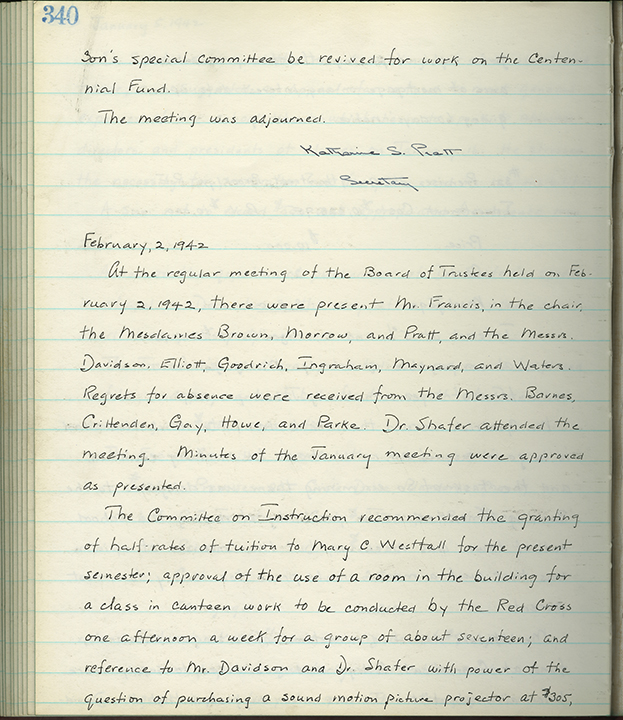 340
son's special committee be revived for work on the Centen-
nial Fund.
The meeting was adjourned.
Katharine S. Pratt
Secretary
February, 2, 1942
At the regular meeting of the Board of Trustees held on Feb-
ruary 2, 1942, there were present Mr. Francis, in the chair,
the Mesdames Brown, Morrow, and Pratt, and the Messrs.
Davidson, Elliott, Goodrich, Ingraham, Maynard, and Waters.
Regrets for absence were received from the Messrs. Barnes,
Crittenden, Gay, Howe, and Parke. Dr. Shafer attended the
meeting. Minutes of the January meeting were approved
as presented.
The Committee on Instruction recommended the granting
of half-rates of tuition to Mary C. Westfall for the present
semester; approval of the use of a room in the building for
a class in canteen work to be conducted by the Red Cross
one afternoon a week for a group of about seventeen; and
reference to Mr. Davidson and Dr. Shafer with power of the
question of purchasing a sound motion picture projector at $305,